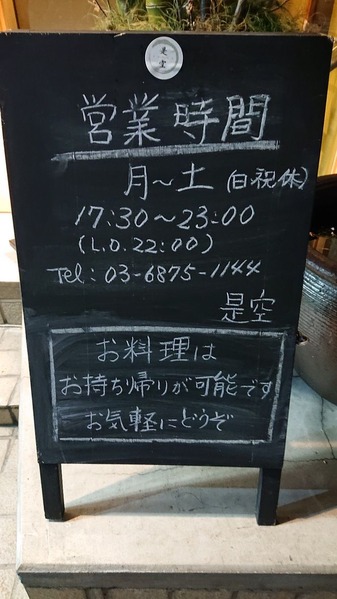 是空
営業時間
月～土 (日・祝休)
17:30～23:00
(L.O.22:00)
Tel: 03-6875-1144
是空
お料理は
お持ち帰りが可能です
お気軽にどうぞ